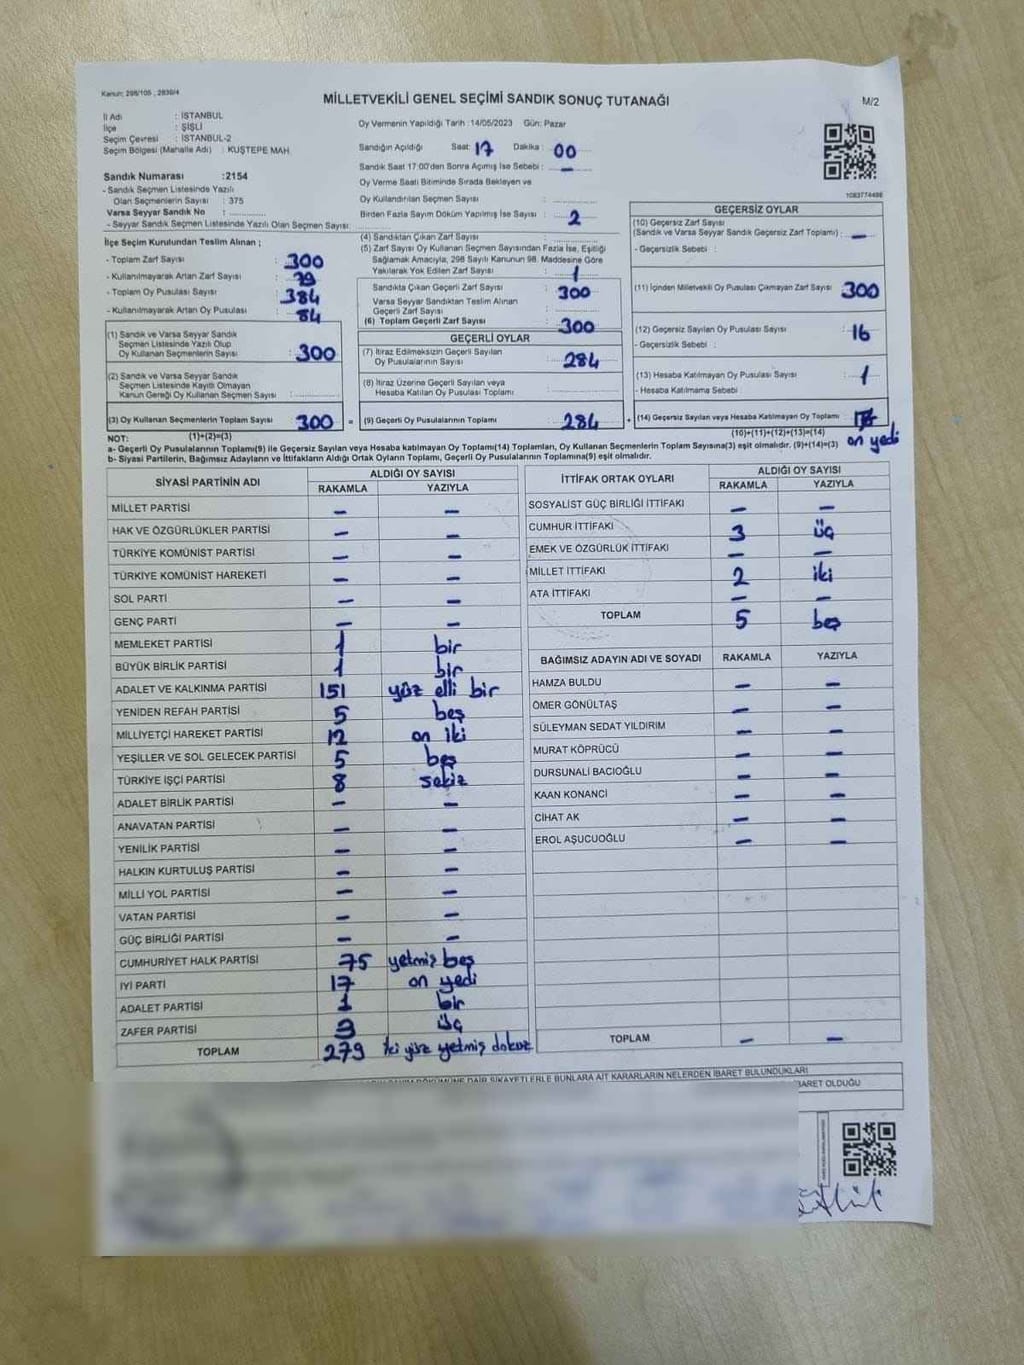 Kanun: 298/105 , 2839/4
MİLLETVEKİLİ GENEL SEÇİMİ SANDIK SONUÇ TUTANAĞI
M/2
İl Adı : İSTANBUL
İlçe : ŞİŞLİ
Seçim Çevresi : İSTANBUL-2
Seçim Bölgesi (Mahalle Adı) : KUŞTEPE MAH.
Sandık Numarası :2154
- Sandık Seçmen Listesinde Yazılı
Olan Seçmenlerin Sayısı : 375
Varsa Seyyar Sandık No :
- Seyyar Sandık Seçmen Listesinde Yazılı Olan Seçmen Sayısı:
Oy Vermenin Yapıldığı Tarih :14/05/2023 Gün: Pazar
Sandığın Açıldığı Saat: 17 Dakika : 00
Sandık Saat 17:00'den Sonra Açımış İse Sebebi : –
Oy Verme Saati Bitiminde Sırada Bekleyen ve
Oy Kullandırılan Seçmen Sayısı :
Birden Fazla Sayım Döküm Yapılmış İse Sayısı : 2
1083774496
İlçe Seçim Kurulundan Teslim Alınan ;
- Toplam Zarf Sayısı : 300
- Kullanılmayarak Artan Zarf Sayısı : 79
- Toplam Oy Pusulası Sayısı : 384
- Kullanılmayarak Artan Oy Pusulası : 84
(1) Sandık ve Varsa Seyyar Sandık
Seçmen Listesinde Yazılı Olup
Oy Kullanan Seçmenlerin Sayısı : 300
(2) Sandık ve Varsa Seyyar Sandık
Seçmen Listesinde Kayıtlı Olmayan
Kanun Gereği Oy Kullanan Seçmen Sayısı :
(3) Oy Kullanan Seçmenlerin Toplam Sayısı : 300 =
(4) Sandıktan Çıkan Zarf Sayısı :
(5) Zarf Sayısı Oy Kullanan Seçmen Sayısından Fazla İse, Eşitliği
Sağlamak Amacıyla, 298 Sayılı Kanunun 98. Maddesine Göre
Yakılarak Yok Edilen Zarf Sayısı : 1
Sandıkta Çıkan Geçerli Zarf Sayısı : 300
Varsa Seyyar Sandıktan Teslim Alınan
Geçerli Zarf Sayısı :
(6) Toplam Geçerli Zarf Sayısı : 300
GEÇERLİ OYLAR
(7) İtiraz Edilmeksizin Geçerli Sayılan
Oy Pusulalarının Sayısı : 284
(8) İtiraz Üzerine Geçerli Sayılan veya
Hesaba Katılan Oy Pusulası Toplamı :
(9) Geçerli Oy Pusulalarının Toplamı : 284 +
GEÇERSİZ OYLAR
(10) Geçersiz Zarf Sayısı
(Sandık ve Varsa Seyyar Sandık Geçersiz Zarf Toplamı) : –
- Geçersizlik Sebebi :
(11) İçinden Milletvekili Oy Pusulası Çıkmayan Zarf Sayısı : 300
(12) Geçersiz Sayılan Oy Pusulası Sayısı : 16
- Geçersizlik Sebebi :
(13) Hesaba Katılmayan Oy Pusulası Sayısı : 1
- Hesaba Katılmama Sebebi
(14) Geçersiz Sayılan veya Hesaba Katılmayan Oy Toplamı :
on yedi
NOT: (1)+(2)=(3) (10)+(11)+(12)+(13)=(14)
a- Geçerli Oy Pusulalarının Toplamı(9) ile Geçersiz Sayılan veya Hesaba katılmayan Oy Toplamı(14) Toplamları, Oy Kullanan Seçmenlerin Toplam Sayısına(3) eşit olmalıdır. (9)+(14)=(3)
b- Siyasi Partilerin, Bağımsız Adayların ve İttifakların Aldığı Ortak Oyların Toplamı, Geçerli Oy Pusulalarının Toplamına(9) eşit olmalıdır.
SİYASİ PARTİNİN ADI ALDIĞI OY SAYISI
RAKAMLA YAZIYLA
MİLLET PARTİSİ – –
HAK VE ÖZGÜRLÜKLER PARTİSİ – –
TÜRKİYE KOMÜNİST PARTİSİ – –
TÜRKİYE KOMÜNİST HAREKETİ – –
SOL PARTİ – –
GENÇ PARTİ – –
MEMLEKET PARTİSİ 1 bir
BÜYÜK BİRLİK PARTİSİ 1 bir
ADALET VE KALKINMA PARTİSİ 151 yüz elli bir
YENİDEN REFAH PARTİSİ 5 beş
MİLLİYETÇİ HAREKET PARTİSİ 12 on iki
YEŞİLLER VE SOL GELECEK PARTİSİ 5 beş
TÜRKİYE İŞÇİ PARTİSİ 8 sekiz
ADALET BİRLİK PARTİSİ – –
ANAVATAN PARTİSİ – –
YENİLİK PARTİSİ – –
HALKIN KURTULUŞ PARTİSİ – –
MİLLİ YOL PARTİSİ – –
VATAN PARTİSİ – –
GÜÇ BİRLİĞİ PARTİSİ – –
CUMHURİYET HALK PARTİSİ 75 yetmiş beş
İYİ PARTİ 17 on yedi
ADALET PARTİSİ 1 bir
ZAFER PARTİSİ 3 üç
TOPLAM 279 iki yüz yetmiş dokuz
İTTİFAK ORTAK OYLARI ALDIĞI OY SAYISI
RAKAMLA YAZIYLA
SOSYALİST GÜÇ BİRLİĞİ İTTİFAKI – –
CUMHUR İTTİFAKI 3 üç
EMEK VE ÖZGÜRLÜK İTTİFAKI – –
MİLLET İTTİFAKI 2 iki
ATA İTTİFAKI – –
TOPLAM 5 beş
BAĞIMSIZ ADAYIN ADI VE SOYADI RAKAMLA YAZIYLA
HAMZA BULDU – –
ÖMER GÖNÜLTAŞ – –
SÜLEYMAN SEDAT YILDIRIM – –
MURAT KÖPRÜCÜ – –
DURSUNALİ BACIOĞLU – –
KAAN KONANCI – –
CİHAT AK – –
EROL AŞUCUOĞLU – –
TOPLAM – –
DÖKÜMÜNE DAİR ŞİKAYETLERLE BUNLARA AİT KARARLARIN NELERDEN İBARET BULUNDUKLARI
İBARET OLDUĞU